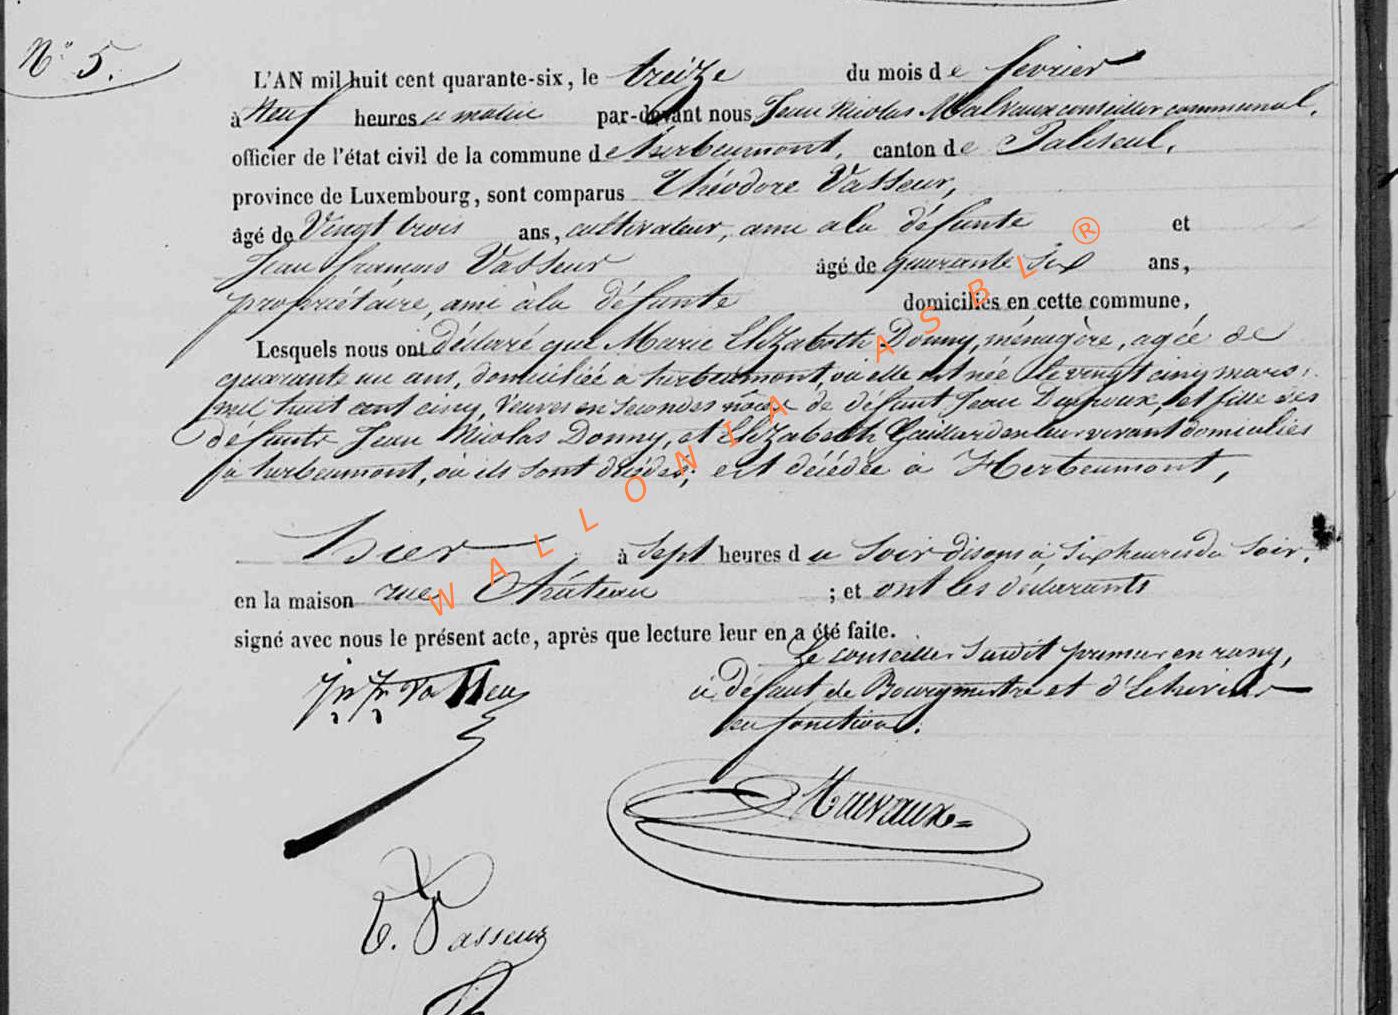 N° 5.
L'AN mil huit cent quarante-six, le treize du mois de fevrier
à Neuf heures du matin par-devant nous Jean Nicolas Malvaux conseiller communal,
officier de l'état civil de la commune d'herbeumont, canton de Paliseul,
province de Luxembourg, sont comparus Théodore Vasseur,
âgé de Vingt trois ans, cultivateur, ami a la défunte et
Jean françois Vasseur âgé de quarante six ans,
propriétaire, ami à la défunte domiciliés en cette commune,
Lesquels nous ont déclaré que Marie Elizabeth Donny, ménagère, agée de
quarante un ans, domiciliée a herbeumont, où elle est née le vingt cinq mars
mil huit cent cinq, Veuve en secondes nôces de défunt Jean et fille des
défunts Jean Nicolas Donny, et Elizabeth Gaillard en leur vivant domiciliés
a herbeumont, où ils sont décédés, est décédée à Herbeumont,
hier à Sept heures du Soir disons à Six heures du Soir.
en la maison rue Château ; et ont les déclarants
signé avec nous le présent acte, après que lecture leur en a été faite.
Le conseiller Susdit premier en rang,
à défaut de Bourgmestre et d'Echevin
en fonction.
Jn Fr Vasseur
Malvaux
T. Vasseur
WALLONIA ASBL ®